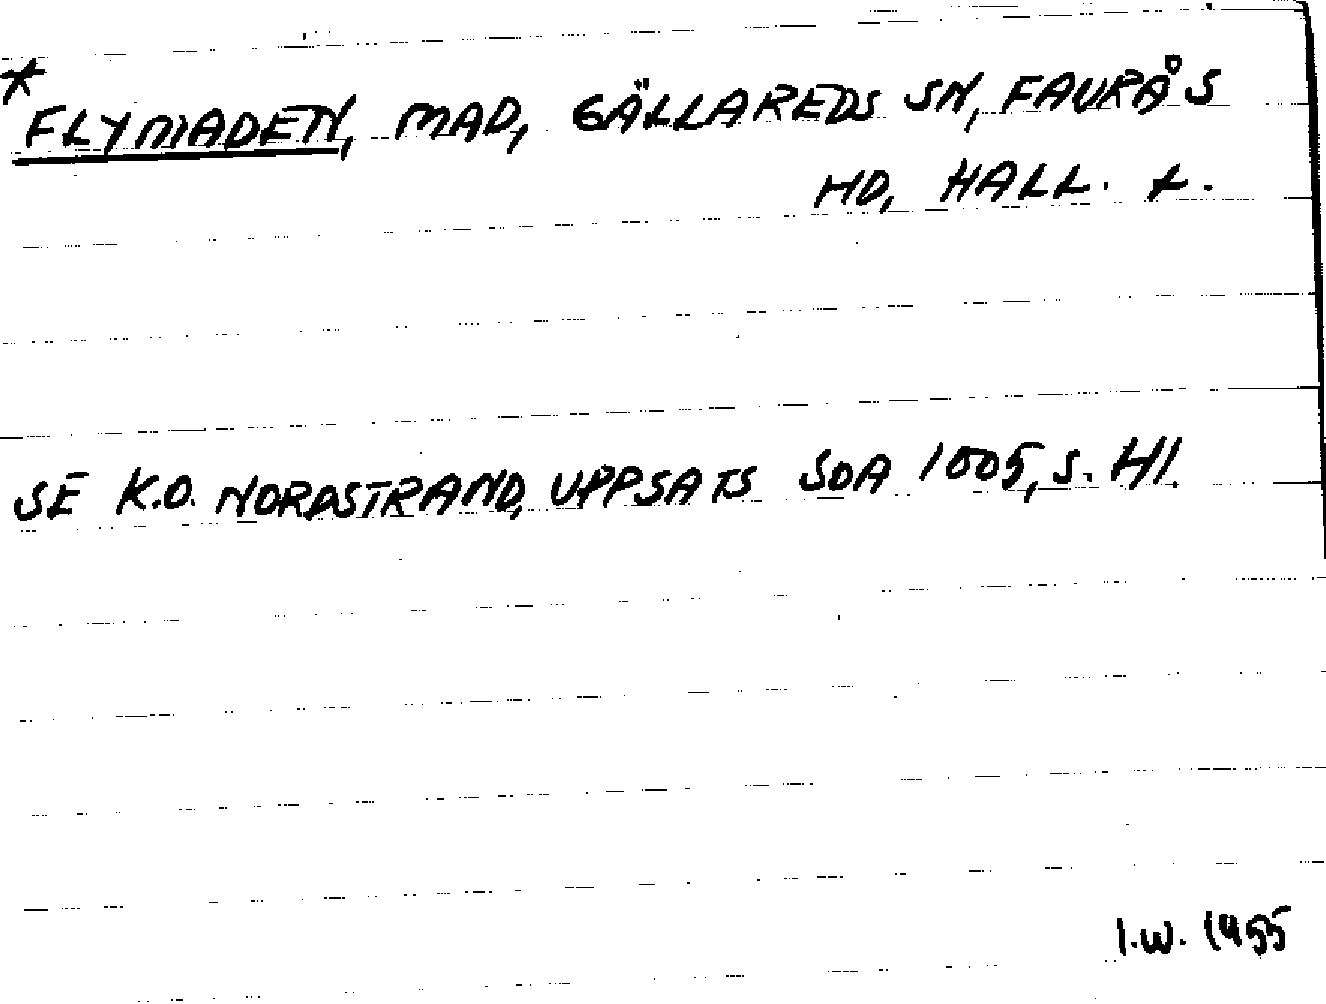 *
FLYMADEN, MAD, GÄLLAREDS SN, FAURÅS
HD, HALL. L.
SE K.O. NORDSTRAND, UPPSATS SOA 1005, S. 41.
I.W. 1955